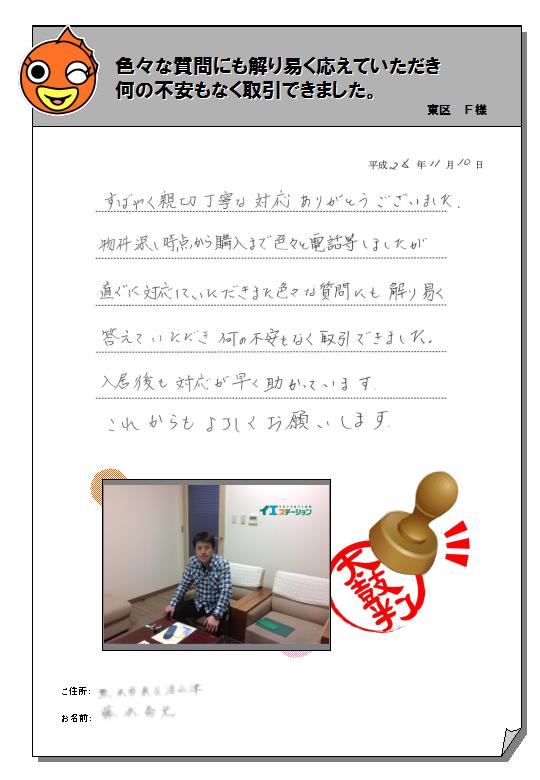 色々な質問にも解り易く応えていただき
何の不安もなく取引できました。
東区 F様
平成26年11月10日
すばやく親切丁寧な対応ありがとうございました.
物件探し時点から購入まで色々と電話等しましたが
直ぐに対応していただきまた色々な質問にも解り易く
答えていただき何の不安もなく取引できました。
入居後も対応が早く助かっています
これからもよろしくお願いします
イエステーション
太鼓判
ご住所:
お名前: